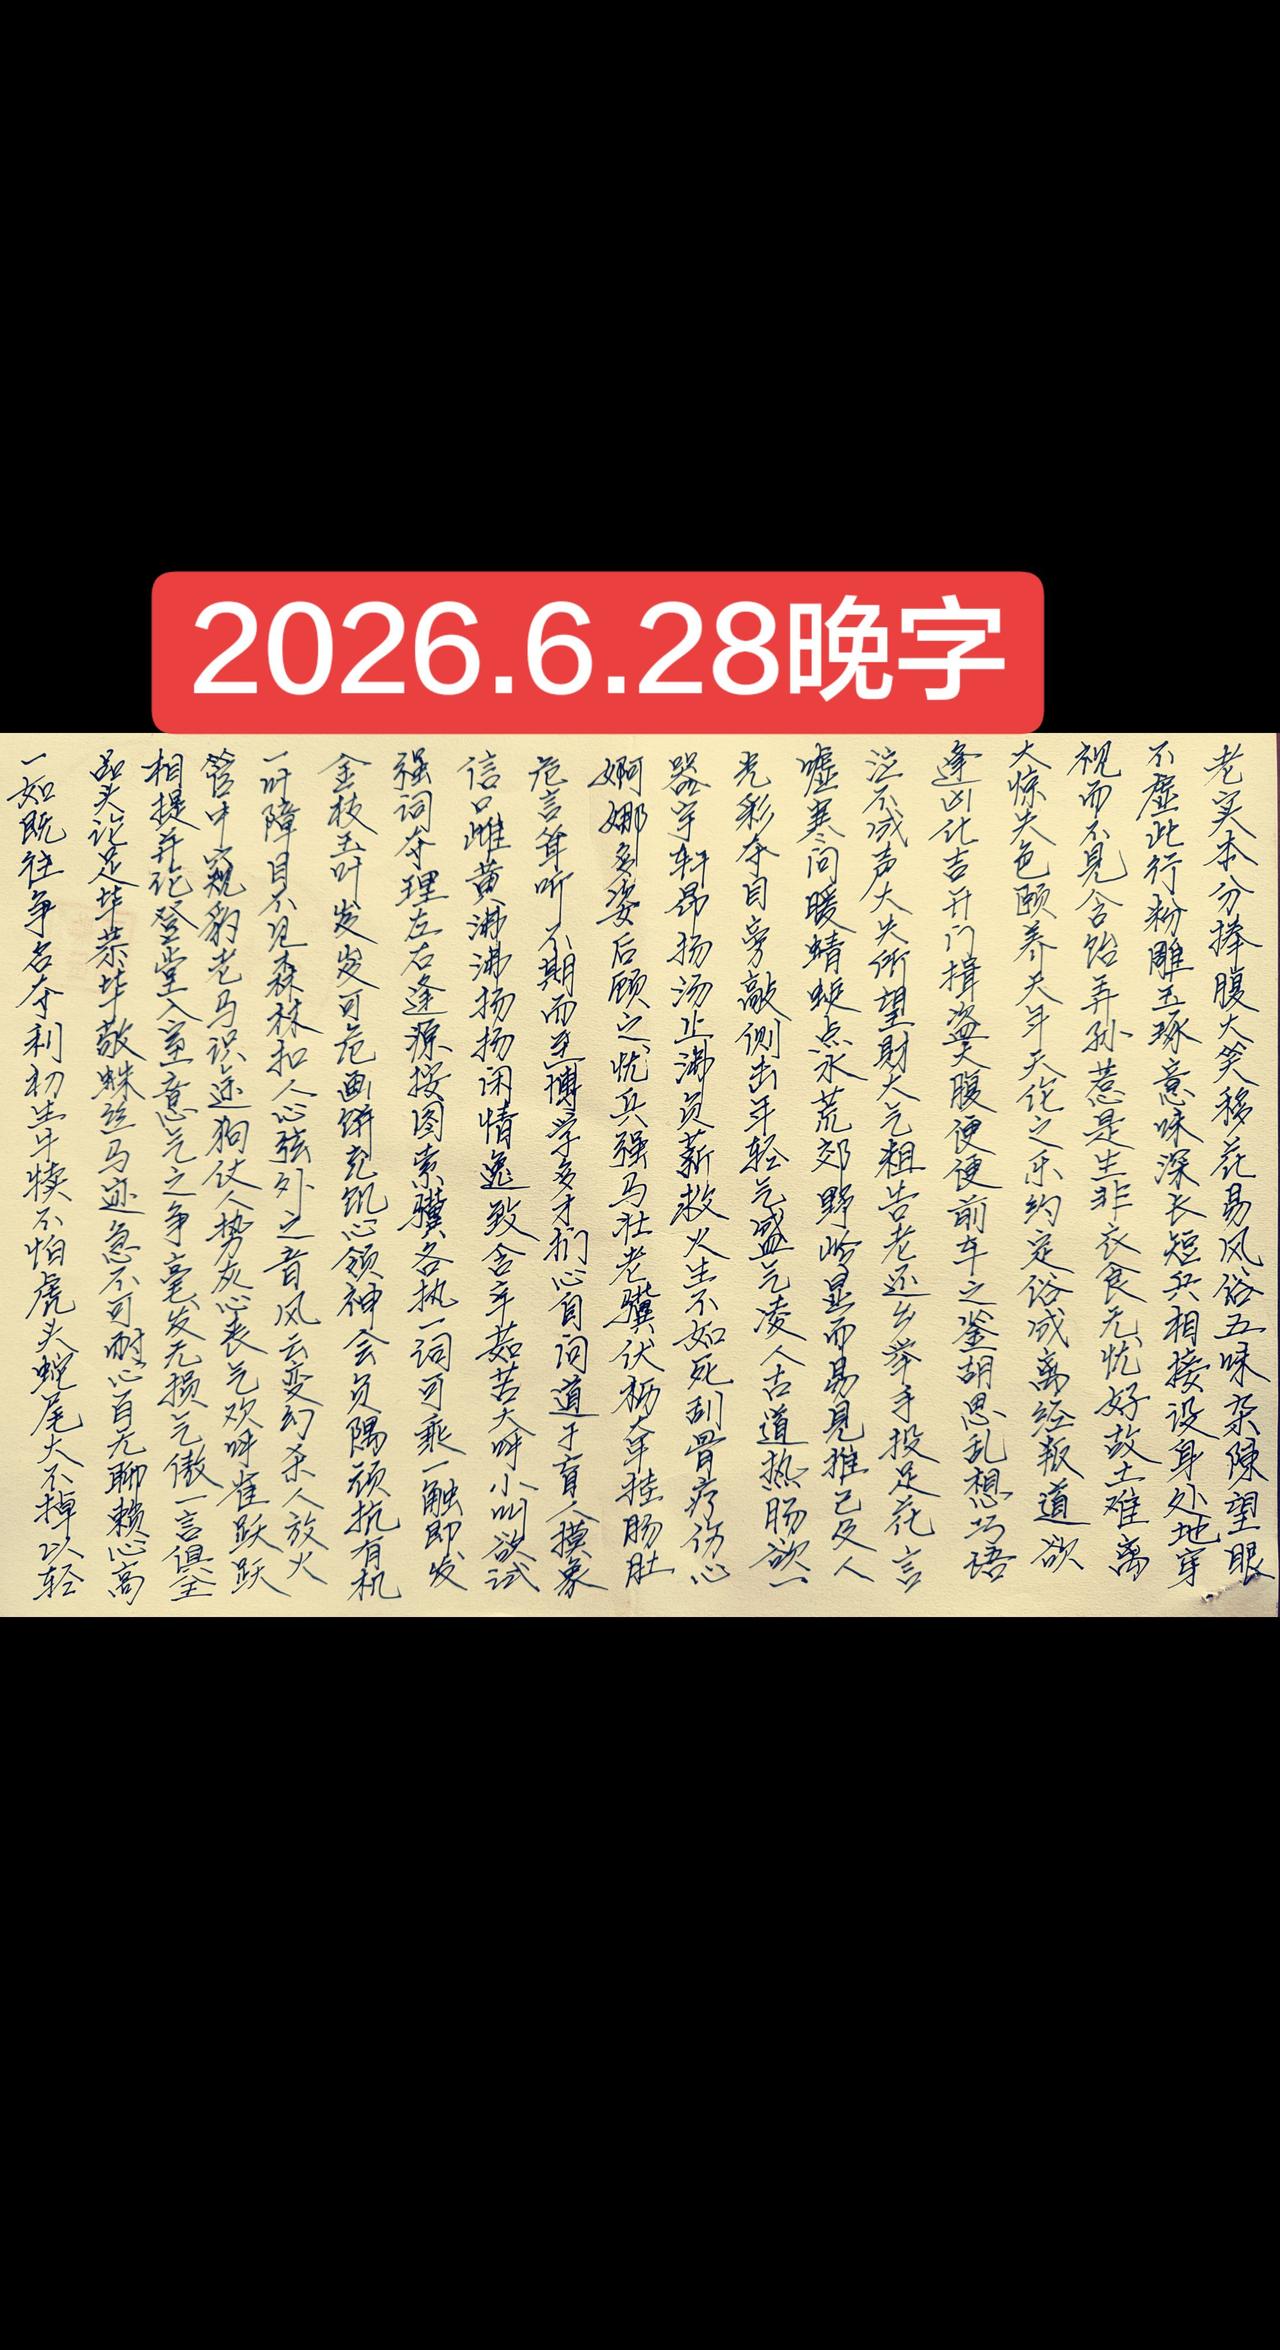 2026.6.28晚字
老实本分捧腹大笑移花易风俗五味杂陈望眼
不虚此行粉雕玉琢意味深长短兵相接设身处地穿
视而不见含饴弄孙惹是生非衣食无忧好故土难离
大惊失色颐养天年天伦之乐约定俗成离经叛道欲
逢凶化吉开门揖盗大腹便便前车之鉴胡思乱想巧语
泣不成声大失所望财大气粗告老还乡举手投足花言
嘘寒问暖蜻蜓点水荒郊野岭显而易见推己及人
光彩夺目旁敲侧击年轻气盛气凌人古道热肠欲一
器宇轩昂扬汤止沸负薪救火生不如死刮骨疗伤心
婀娜多姿后顾之忧兵强马壮老骥伏枥牵挂肠肚
危言耸听不期而遇博学多才扪心自问道于盲人摸象
信口雌黄沸沸扬扬闲情逸致含辛茹苦大呼小叫欲试
强词夺理左右逢源按图索骥各执一词可乘一触即发
金枝玉叶岌岌可危画饼充饥心领神会负隅顽抗有机
一叶障目不见森林扣人心弦外之音风云变幻杀人放火
管中窥豹老马识途狗仗人势灰心丧气欢呼雀跃跃
相提并论登堂入室意气之争毫发无损气傲一言俱全
品头论足毕恭毕敬蛛丝马迹急不可耐心百无聊赖心高
一如既往争名夺利初生牛犊不怕虎头蛇尾大不掉以轻